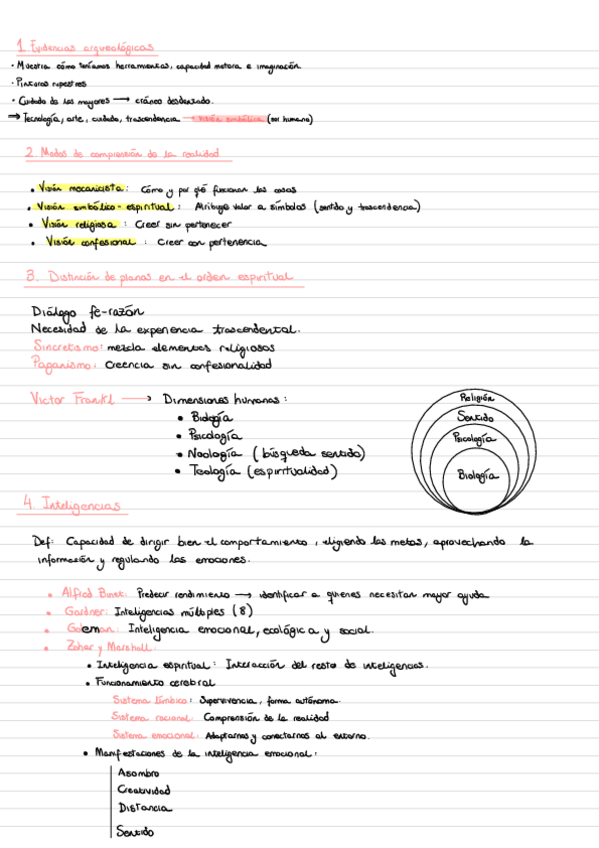 1. Evidencias arqueológicas
· Muestra cómo teníamos herramientas, capacidad motora e imaginación.
· Pinturas rupestres
· Cuidado de los mayores → cráneo desdentado.
⇒ Tecnología, arte, cuidado, trascendencia → visión simbólica (ser humano)
2. Modos de comprensión de la realidad
• Visión mecanicista: Cómo y por qué funcionan las cosas
• Visión simbólico-espiritual: Atribuye valor a símbolos (sentido y trascendencia)
• Visión religiosa: Creer sin pertenecer
• Visión confesional: Creer con pertenencia
3. Distinción de planos en el orden espiritual
Diálogo fe-razón
Necesidad de la experiencia trascendental.
Sincretismo: mezcla elementos religiosos
Paganismo: Creencia sin confesionalidad
Victor Frankl → Dimensiones humanas:
• Biología
• Psicología
• Noología (búsqueda sentido)
• Teología (espiritualidad)
Religión
Sentido
Psicología
Biología
4. Inteligencias
Def: Capacidad de dirigir bien el comportamiento, eligiendo las metas, aprovechando la
información y regulando las emociones.
• Alfred Binet: Predecir rendimiento → identificar a quienes necesitan mayor ayuda
• Gardner: Inteligencias múltiples (8)
• Goleman: Inteligencia emocional, ecológica y social.
• Zohar y Marshall:
• Inteligencia espiritual: Interacción del resto de inteligencias.
• Funcionamiento cerebral
Sistema límbico: Supervivencia, forma autónoma.
Sistema racional: Comprensión de la realidad
Sistema emocional: Adaptarnos y conectarnos al entorno.
• Manifestaciones de la inteligencia emocional:
Asombro
Creatividad
Distancia
Sentido